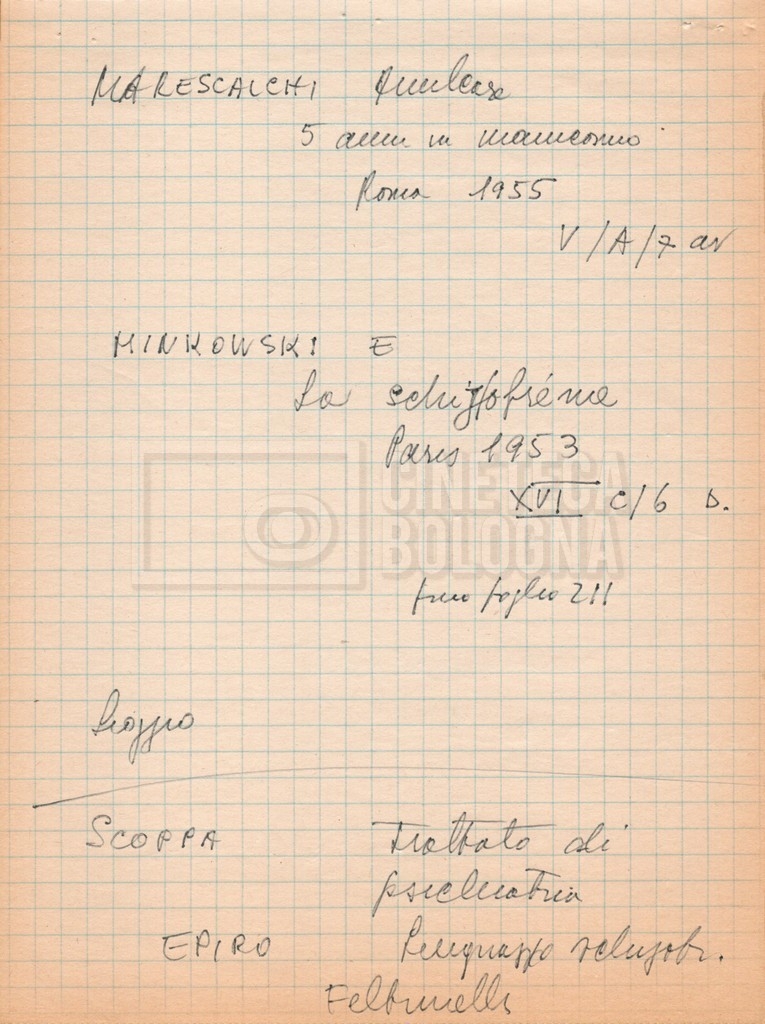 MARESCALCHI Amilcare
5 anni in manicomio
Roma 1955
V/A/7 av
MINKOWSKI E
La schizzofrénie
Paris 1953
XVI C/6 D.
CINETECA
BOLOGNA
foglio 211
SCOPPA Trattato di
psichiatria
EPIRO Linguaggio schizofr.
Feltrinelli